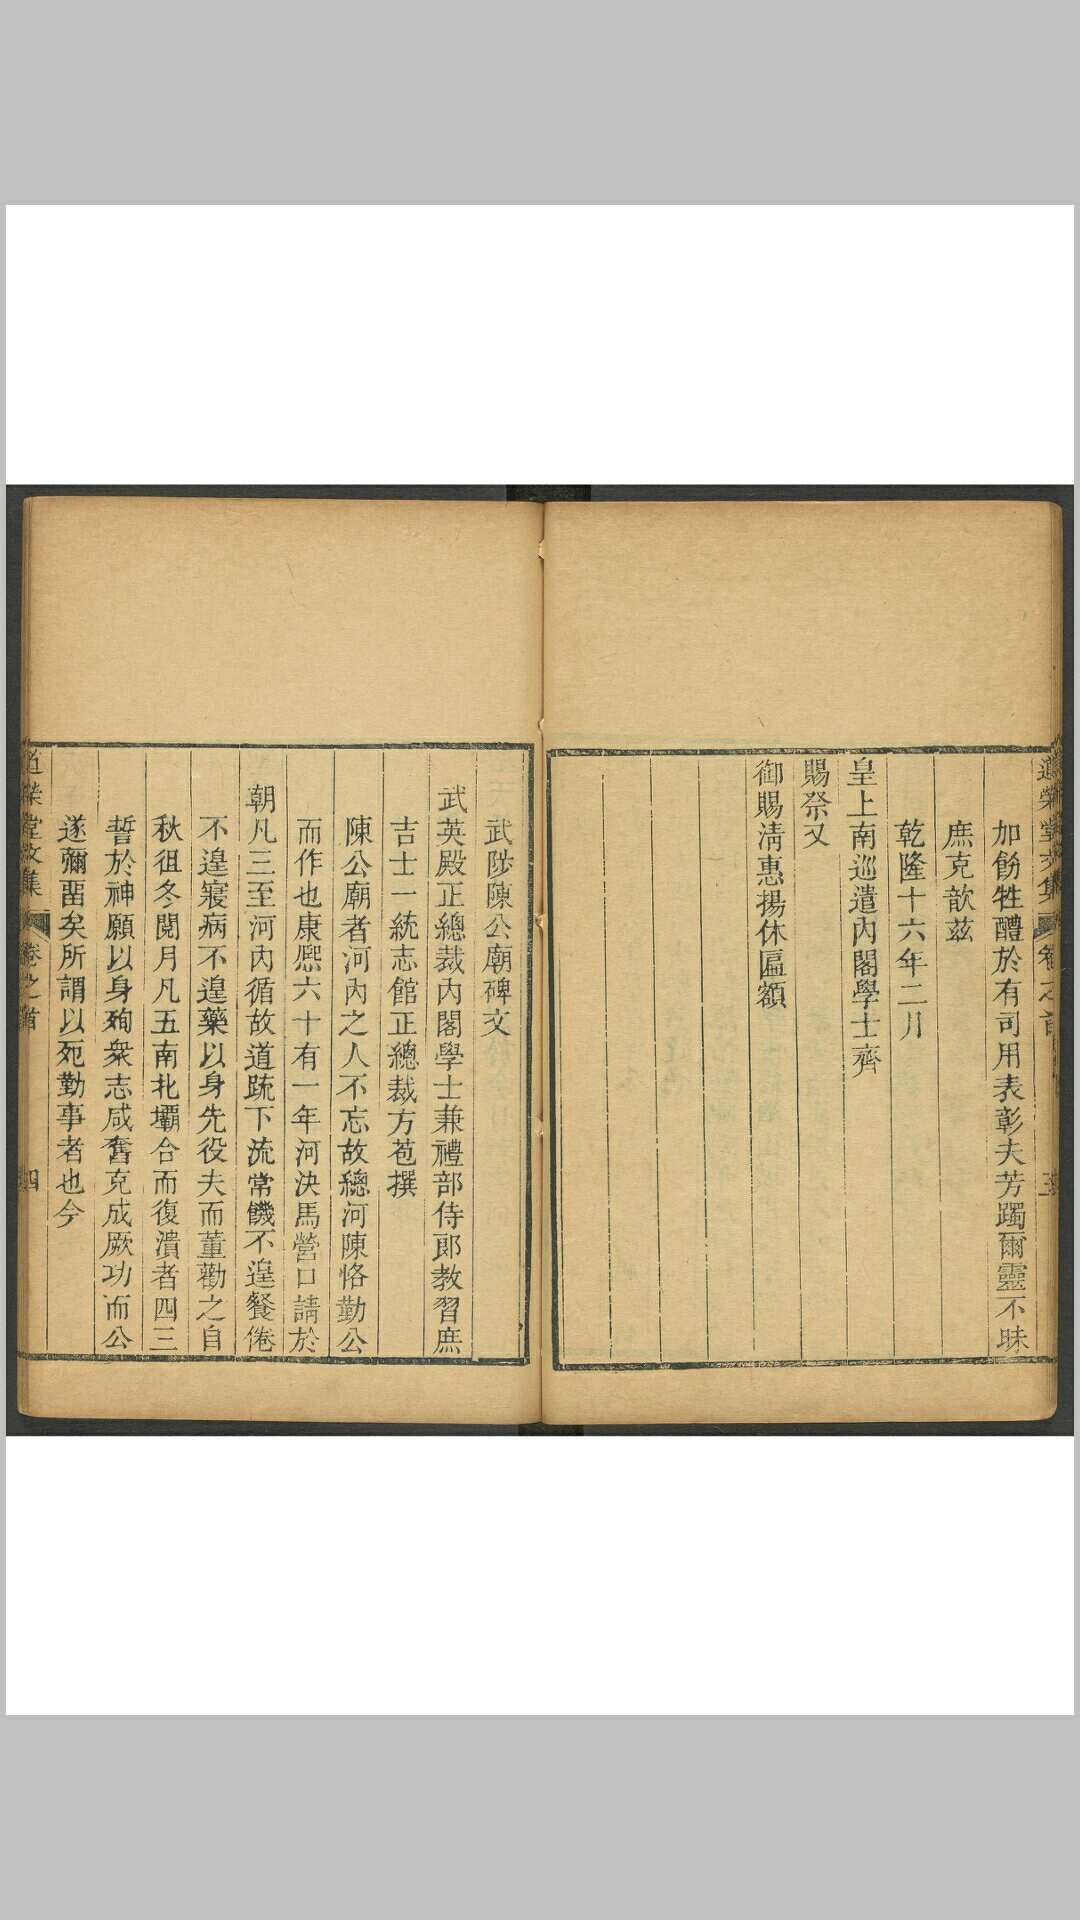 道榮堂文集 卷之首 三
加餝牲醴於有司用表彰夫芳躅爾靈不昧
庶克歆茲
乾隆十六年二月
皇上南巡遣內閣學士齊
賜祭又
御賜淸惠揚休匾額
武陟陳公廟碑文
武英殿正總裁內閣學士兼禮部侍郎教習庶
吉士一統志館正總裁方苞撰
陳公廟者河內之人不忘故總河陳恪勤公
而作也康熙六十有一年河決馬營口請於
朝凡三至河內循故道疏下流常饑不遑餐倦
不遑寢病不遑藥以身先役夫而董勸之自
秋徂冬閱月凡五南北壩合而復潰者四三
誓於神願以身殉衆志咸奮克成厥功而公
遂彌留矣所謂以死勤事者也今
道榮堂文集 卷之首 四